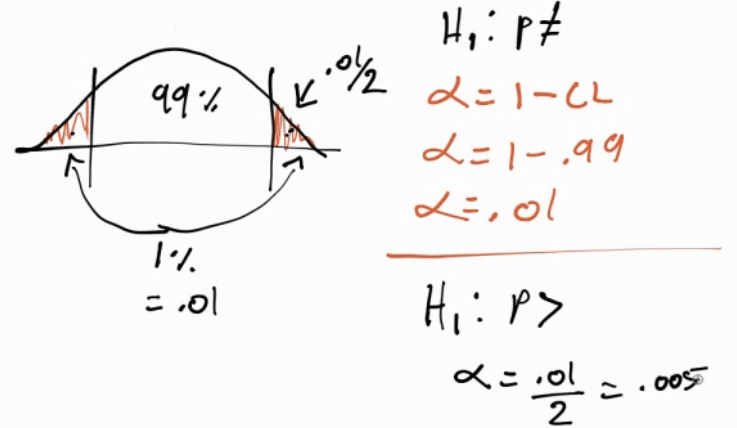 99%
.01/2
1%
= .01
H₁: p≠
α = 1 - CL
α = 1 - .99
α = .01
H₁: p>
α = .01/2 = .005